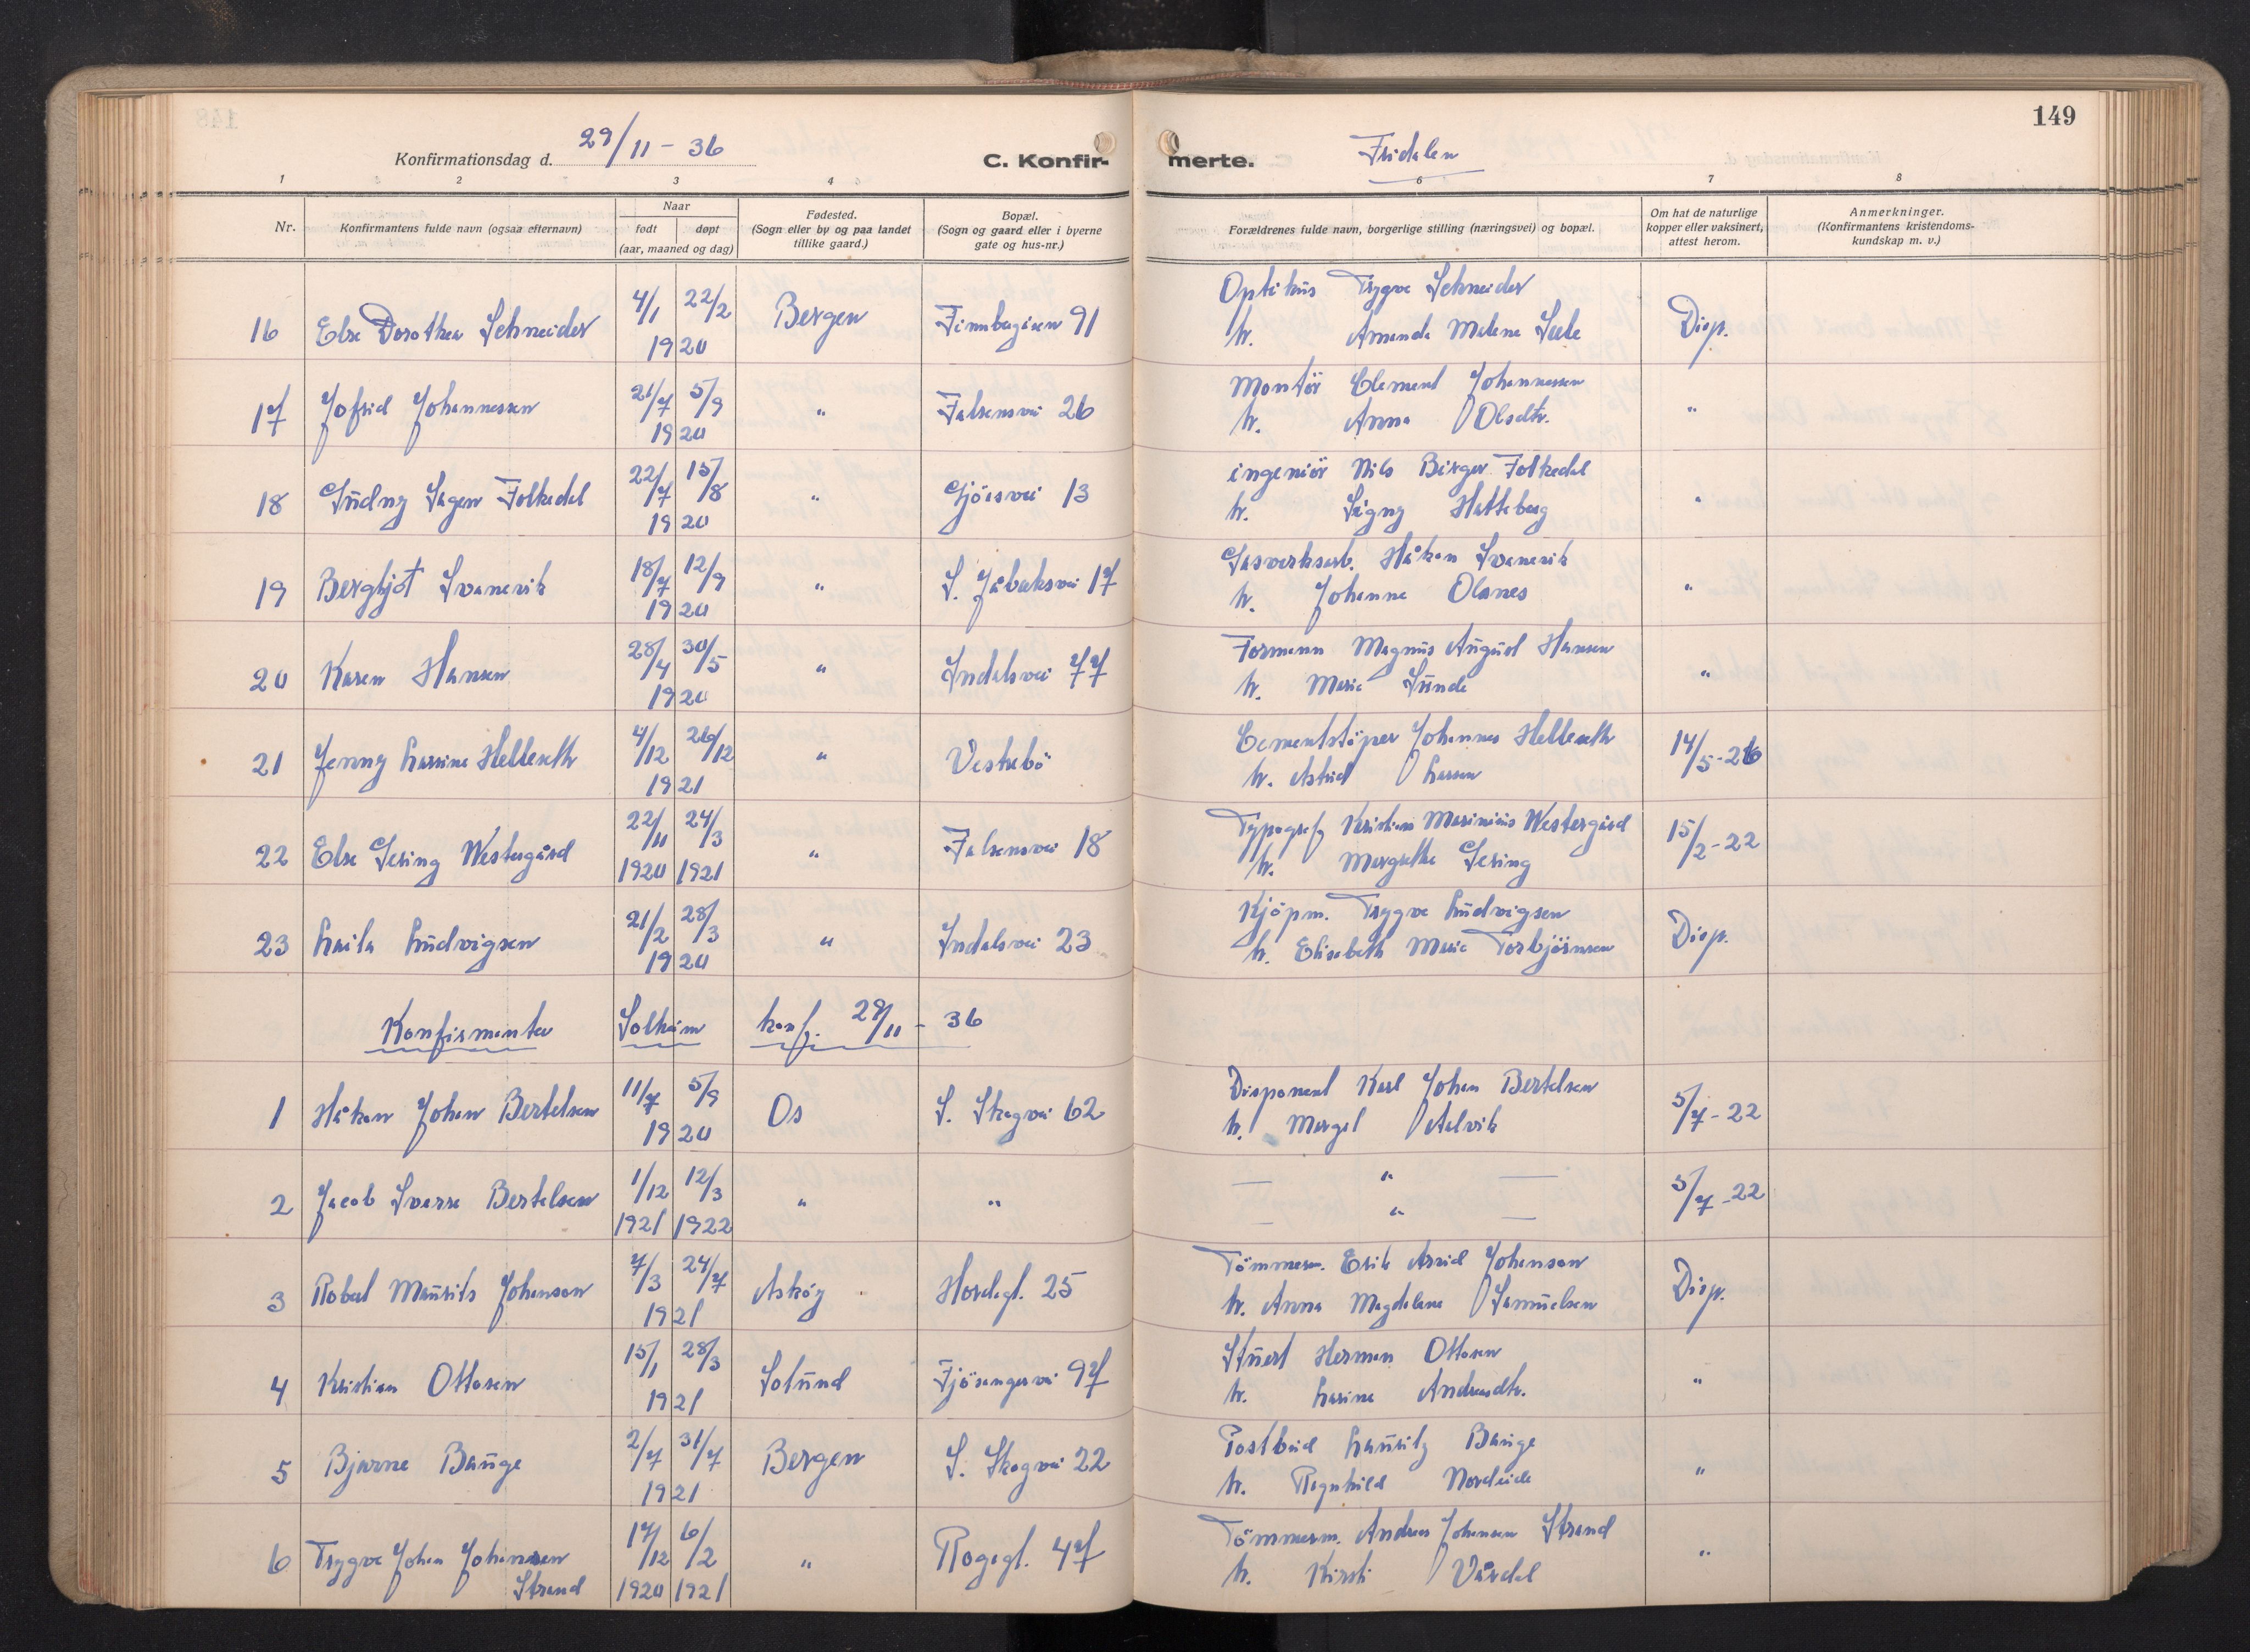 149
Konfirmationsdag d. 29/11 - 36
C. Konfir- merte. Fridalen
1 2 3 4 5 6 7 8
Nr.
Konfirmantens fulde navn (ogsaa efternavn)
Naar
født døpt
(aar, maaned og dag)
Fødested.
(Sogn eller by og paa landet
tillike gaard.)
Bopæl.
(Sogn og gaard eller i byerne
gate og hus-nr.)
Forældrenes fulde navn, borgerlige stilling (næringsvei) og bopæl.
Om hat de naturlige
kopper eller vaksinert,
attest herom.
Anmerkninger.
(Konfirmantens kristendoms-
kundskap m. v.)
Optikus Trygve Schneider
16 Else Dorothea Schneider 4/1 22/2 1920 Bergen Finnbergåsen 91 h. Amanda Malene Seele Disp.
Montör Clement Johannessen
17 Jofrid Johannessen 21/7 5/9 1920 " Falsensvei 26 h. Anna Olsdtr. "
ingeniör Nils Birger Folkedal
18 Gudny Sagen Folkedal 22/7 15/8 1920 " Gjöesvei 13 h. Signy Hatteberg "
Gasverksarb. Håkon Svanevik
19 Bergljot Svanevik 18/7 12/9 1920 " S. Jåbæksvei 17 h. Johanne Olsnes "
Formann Magnus August Hansen
20 Karen Hansen 28/4 30/5 1920 " Indalsvei 77 h. Marie Sunde "
Cementstöper Johannes Helleseth
21 Jenny Larsine Helleseth 4/12 26/12 1921 " Vestrebö h. Astrid Larsen 14/5-26
Typograf Kristian Marinius Westergård
22 Else Gering Westergård 22/11 24/3 1920 1921 " Falsensvei 18 h. Margrethe Gering 15/2-22
Kjöpm. Trygve Ludvigsen
23 Laila Ludvigsen 21/2 28/3 1920 " Indalsvei 23 h. Elisabeth Marie Torbjörnsen Disp.
Konfirmanter Solheim konf. 29/11 - 36
Disponent Karl Johan Bertelsen
1 Håkon Johan Bertelsen 11/7 5/9 1920 Os S. Skogvei 62 h. Margit Aalvik 5/7-22
2 Jacob Sverre Bertelsen 1/12 12/3 1921 1922 " " — " — 5/7-22
— " —
Tömmerm. Erik Arvid Johanson
3 Robert Maurits Johanson 7/3 24/7 1921 Askøy Hordagt. 25 h. Anna Magdalena Samuelsen Disp.
Stuert Herman Ottosen
4 Kristian Ottosen 15/1 28/3 1921 Solund Fjösangervei 97 h. Larine Andreasdtr. "
Postbud Lauritz Bauge
5 Bjarne Bauge 2/7 31/7 1921 Bergen S. Skogvei 22 h. Ragnhild Nordeide "
Tömmerm. Andreas Johansen Strand
6 Trygve Johan Johansen 17/12 6/2 1920 1921 " Rogagt. 47 h. Kirsti Vårdal "
Strand